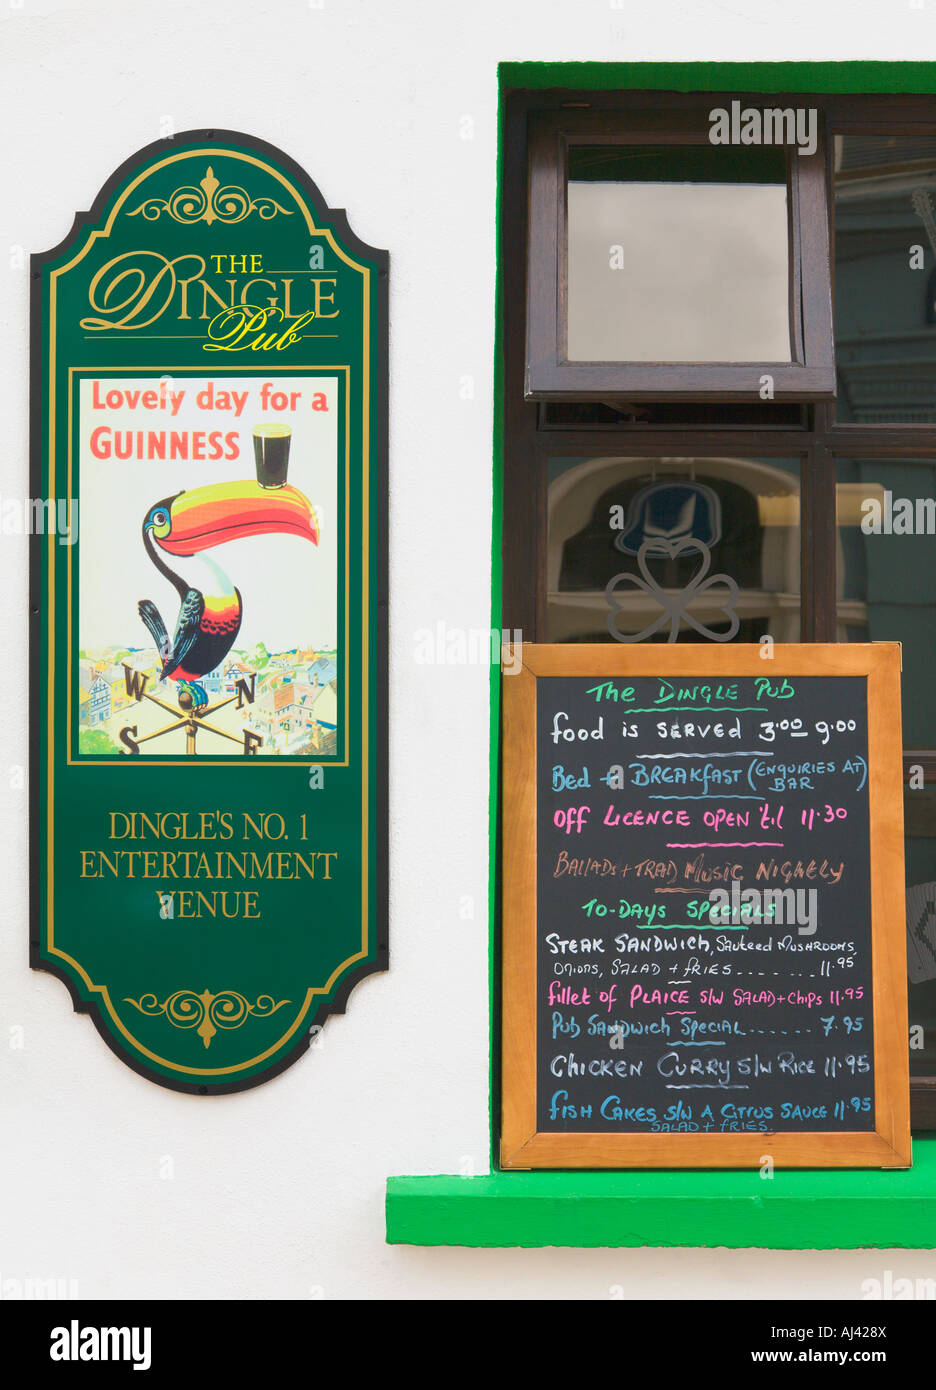 THE
DINGLE
Pub
Lovely day for a
GUINNESS
W N
S E
DINGLE'S NO. 1
ENTERTAINMENT
VENUE
The DINGLE PUB
food is SERVED 3.00 9.00
Bed + BREAKfAST (ENQUIRIES AT BAR)
Off LICENCE OPEN 'til 11.30
BALLADS + TRAD MUSIC NIGHELY
TO-DAYS SPECIALS
STEAK SANDWICH, SAUTEED MUSHROOMS,
ONIONS, SALAD + fRIES ........ 11.95
fillet of PLAICE S/W SALAD + CHIPS 11.95
PUB SANDWICH SPECIAL ...... 7.95
CHICKEN CURRY S/W RICE 11.95
fISH CAKES S/W A CITRUS SAUCE 11.95
SALAD + fRIES.
alamy
Image ID: AJ428X
www.alamy.com